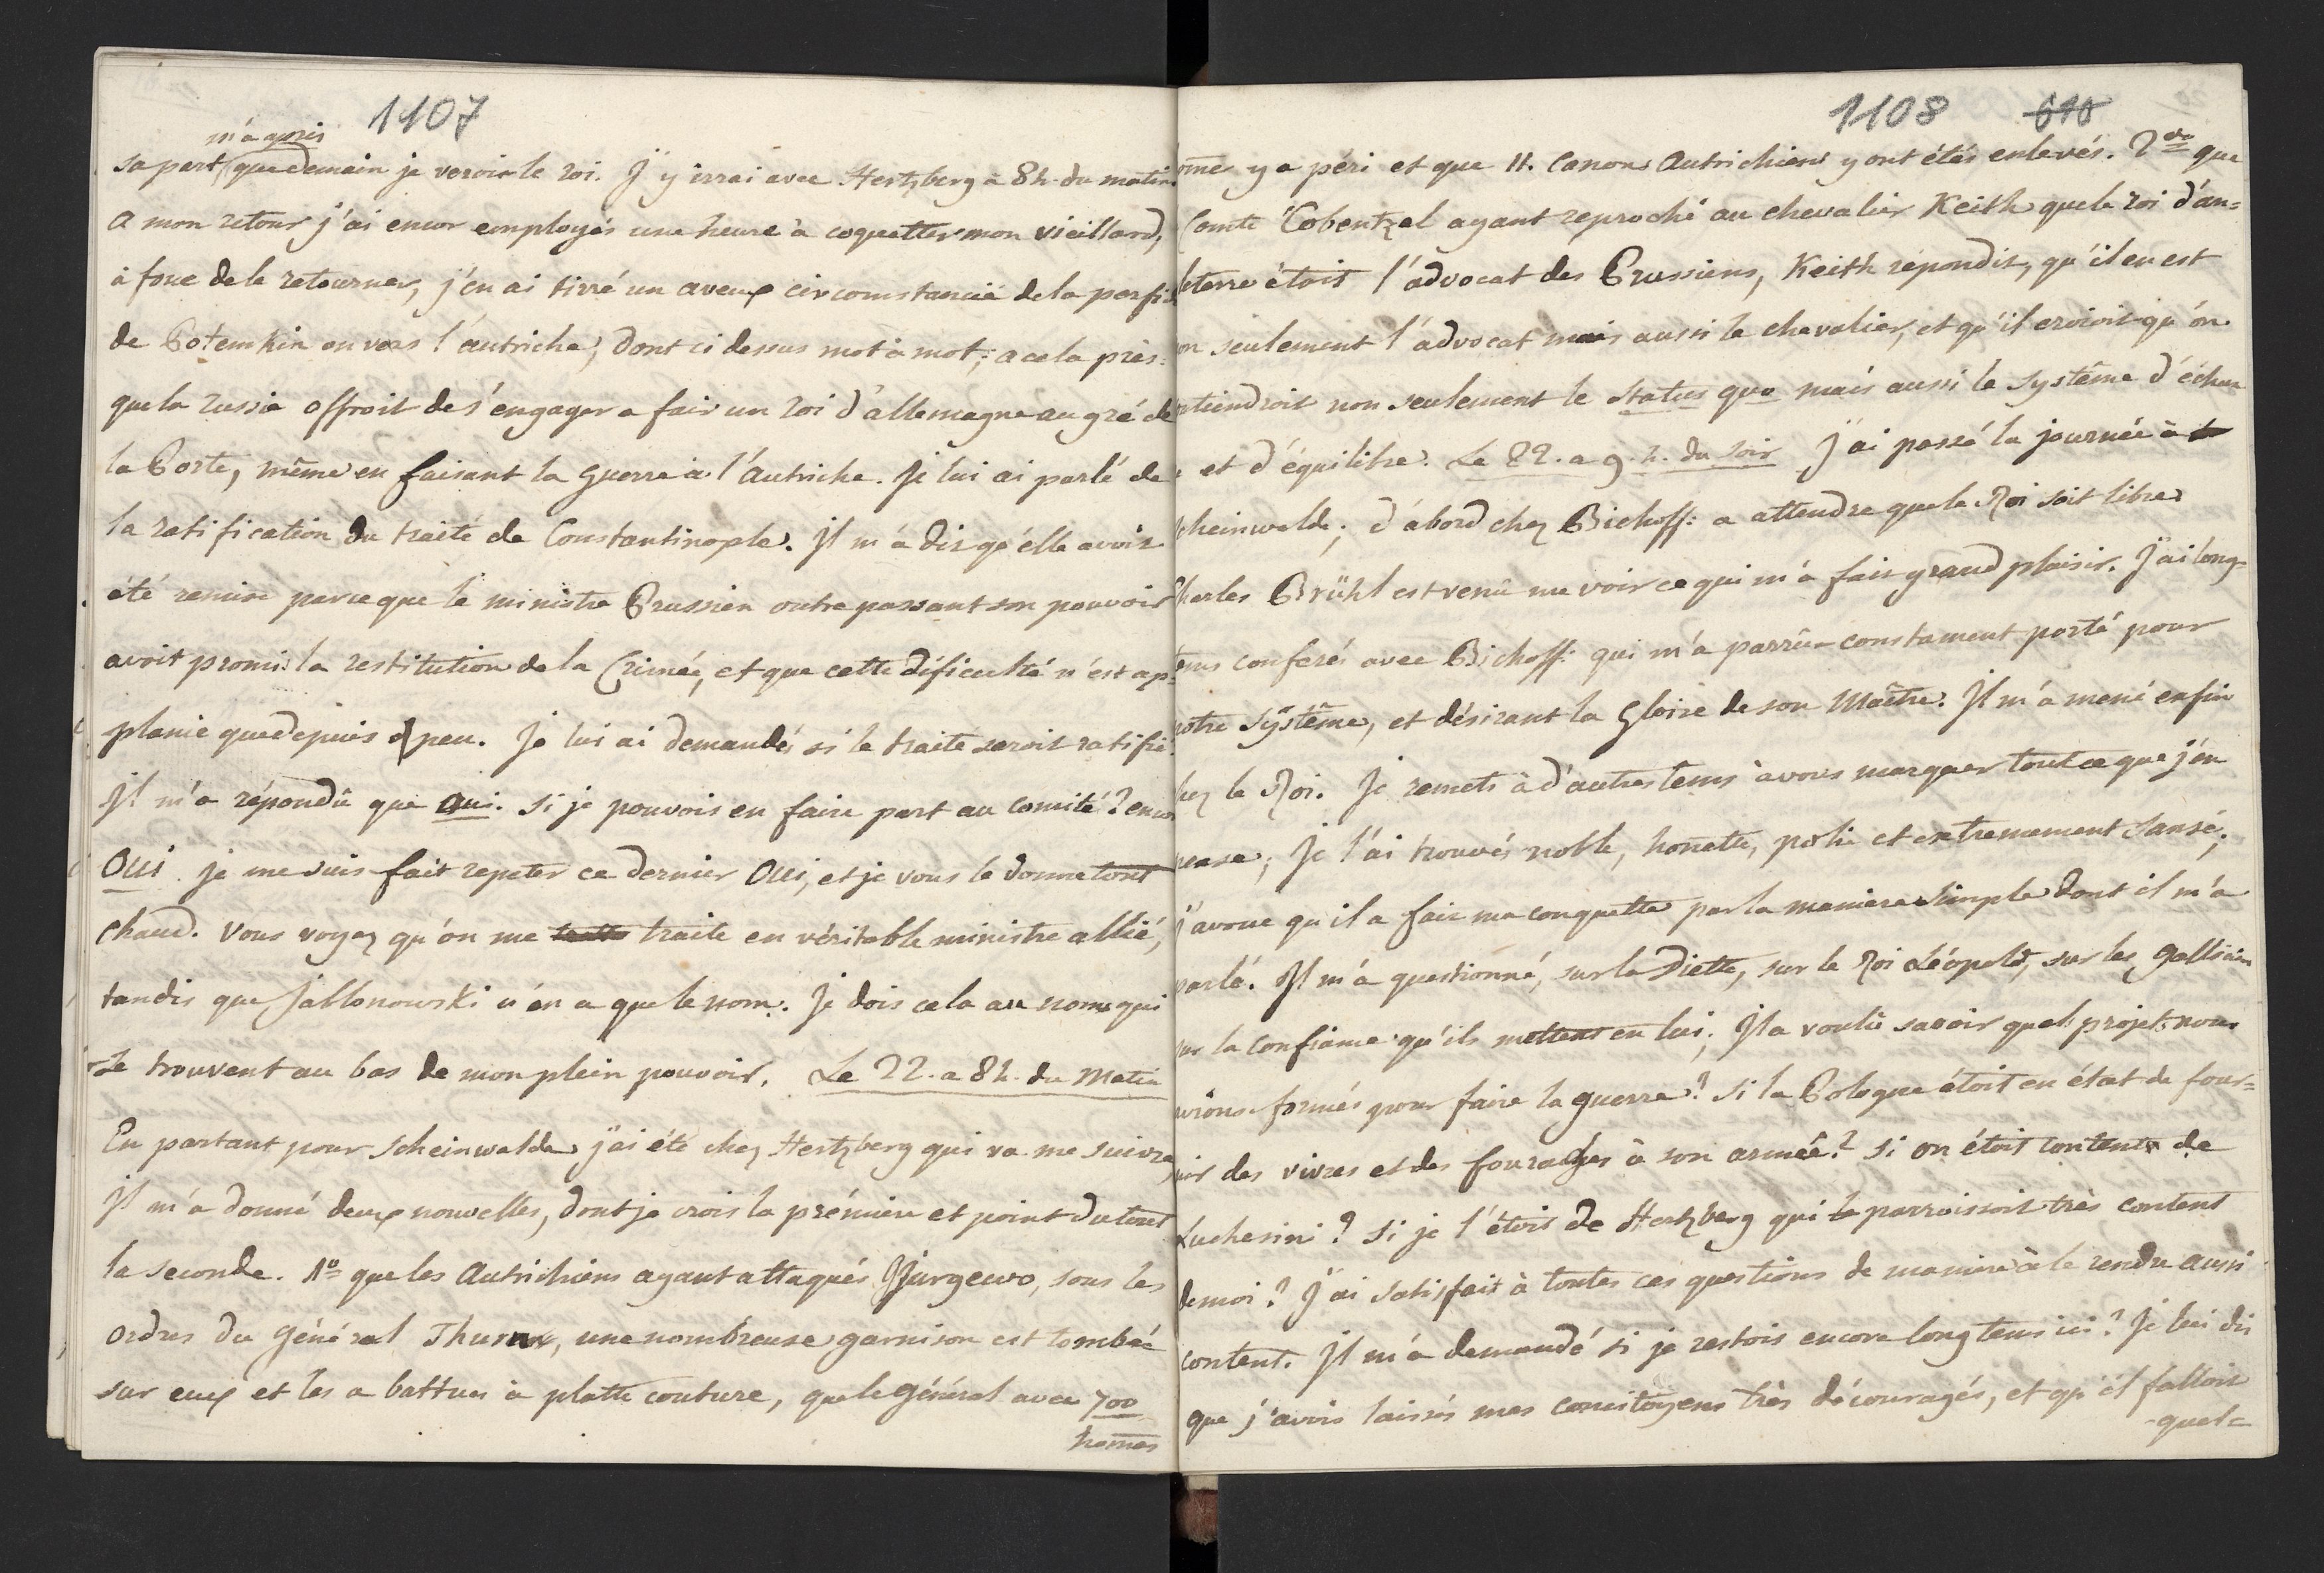 1107
m'a appris
sa part que demain je verois le roi. J'y irrai avec Hertzberg à 8 h. du matin
a mon retour j'ai encor employés une heure à coquetter mon vieillard,
à force de le retourner, j'en ai tirré un aveux circomstancié de la perfi
de Potemkin envers l'autriche, dont ci dessus mot à mot; a cela près
que la russie offroit de s'engager a fair un roi d'allemagne au gré de
la Porte, même en faisant la Guerre à l'Autriche. Je lui ai parlé de
la ratification du traité de Constantinople. Il m'a dit qu'elle avoit
été remise parceque le ministre Prussien outre passant son pouvoir
avoit promis la restitution de la Crimée, et que cette dificulté n'est ap=
planie que depuis peu. Je lui ai demandés si le traité seroit ratifié
Il m'a répondû que oui. Si je pouvois en faire part au comité? encor
Oui. je me suis fait repeter ce dernier Oui, et je vous le donne tout
chaud. Vous voyez qu'on me traite en véritable ministre allié,
tandis que Jablonowski n'en a que le nom. Je dois cela au noms qui
se trouvent au bas de mon plein pouvoir. Le 22. a 8 h. du Matin
En partant pour Scheinwalde j'ai été chez Hertzberg qui va me suivre,
Il m'a donné deux nouvelles, dont je crois la prémière et point du tout
la seconde. 1º que les Autrichiens ayant attaqués Gjurgewo, sous les
ordres du Général Thurn, une nombreuse garnison est tombée
sur eux et les a battues à platte couture, que le Général avec 700
homes
1108 610
omes y a péri et que 11. Canons Autrichiens y ont étés enlevés. 2do que
Comte Cobentzel ayant reproché au chevalier Keith que le roi d'an=
leterre étoit l'advocat des Prussiens, Keith répondit, qu'il en est
on seulement l'advocat mais aussi le chevalier, et qu'il croioit qu'on
ntiendroit non seulement le Status quo mais aussi le Système d'échan
e et d'équilibre. Le 22. a 9. h. du Soir J'ai passé la journée à
cheinwalde; d'abord chez Bichoff: a attendre que le Roi soit libre
Charles Brühl est venû me voir ce qui m'a fait grand plaisir. J'ai long=
tems conferés avec Bichoff: qui m'a parrû constament porté pour
notre Système, et désirant la Gloire de son Maître. Il m'a mené enfin
chez le Roi. Je remets à d'autres tems à vous marquer tout ce que j'en
pense; Je l'ai trouvés noble, honette, polie et extremement Sansé;
j'avoue qu'il a fait ma conquette par la maniere simple dont il m'a
parlé. Il m'a questionné, sur la Diette, sur le Roi Léopold, sur les Galliciens
sur la confiance qu'ils mettent en lui; Il a voulû savoir quel projet nous
avions formés pour faire la guerre? si la Pologne étoit en état de four=
nir des vivres et des fourages à son armée? si on étoit content de
Luchesini? Si je l'étois de Hertzberg qui parroissoit très content
de moi? J'ai satisfait à toutes ces questions de maniere à le rendre aussi
content. Il m'a demandé si je restois encore longtems ici? Je lui dis
que j'avois laissés mes concitoyens très découragés, et qu'il falloit
quel=